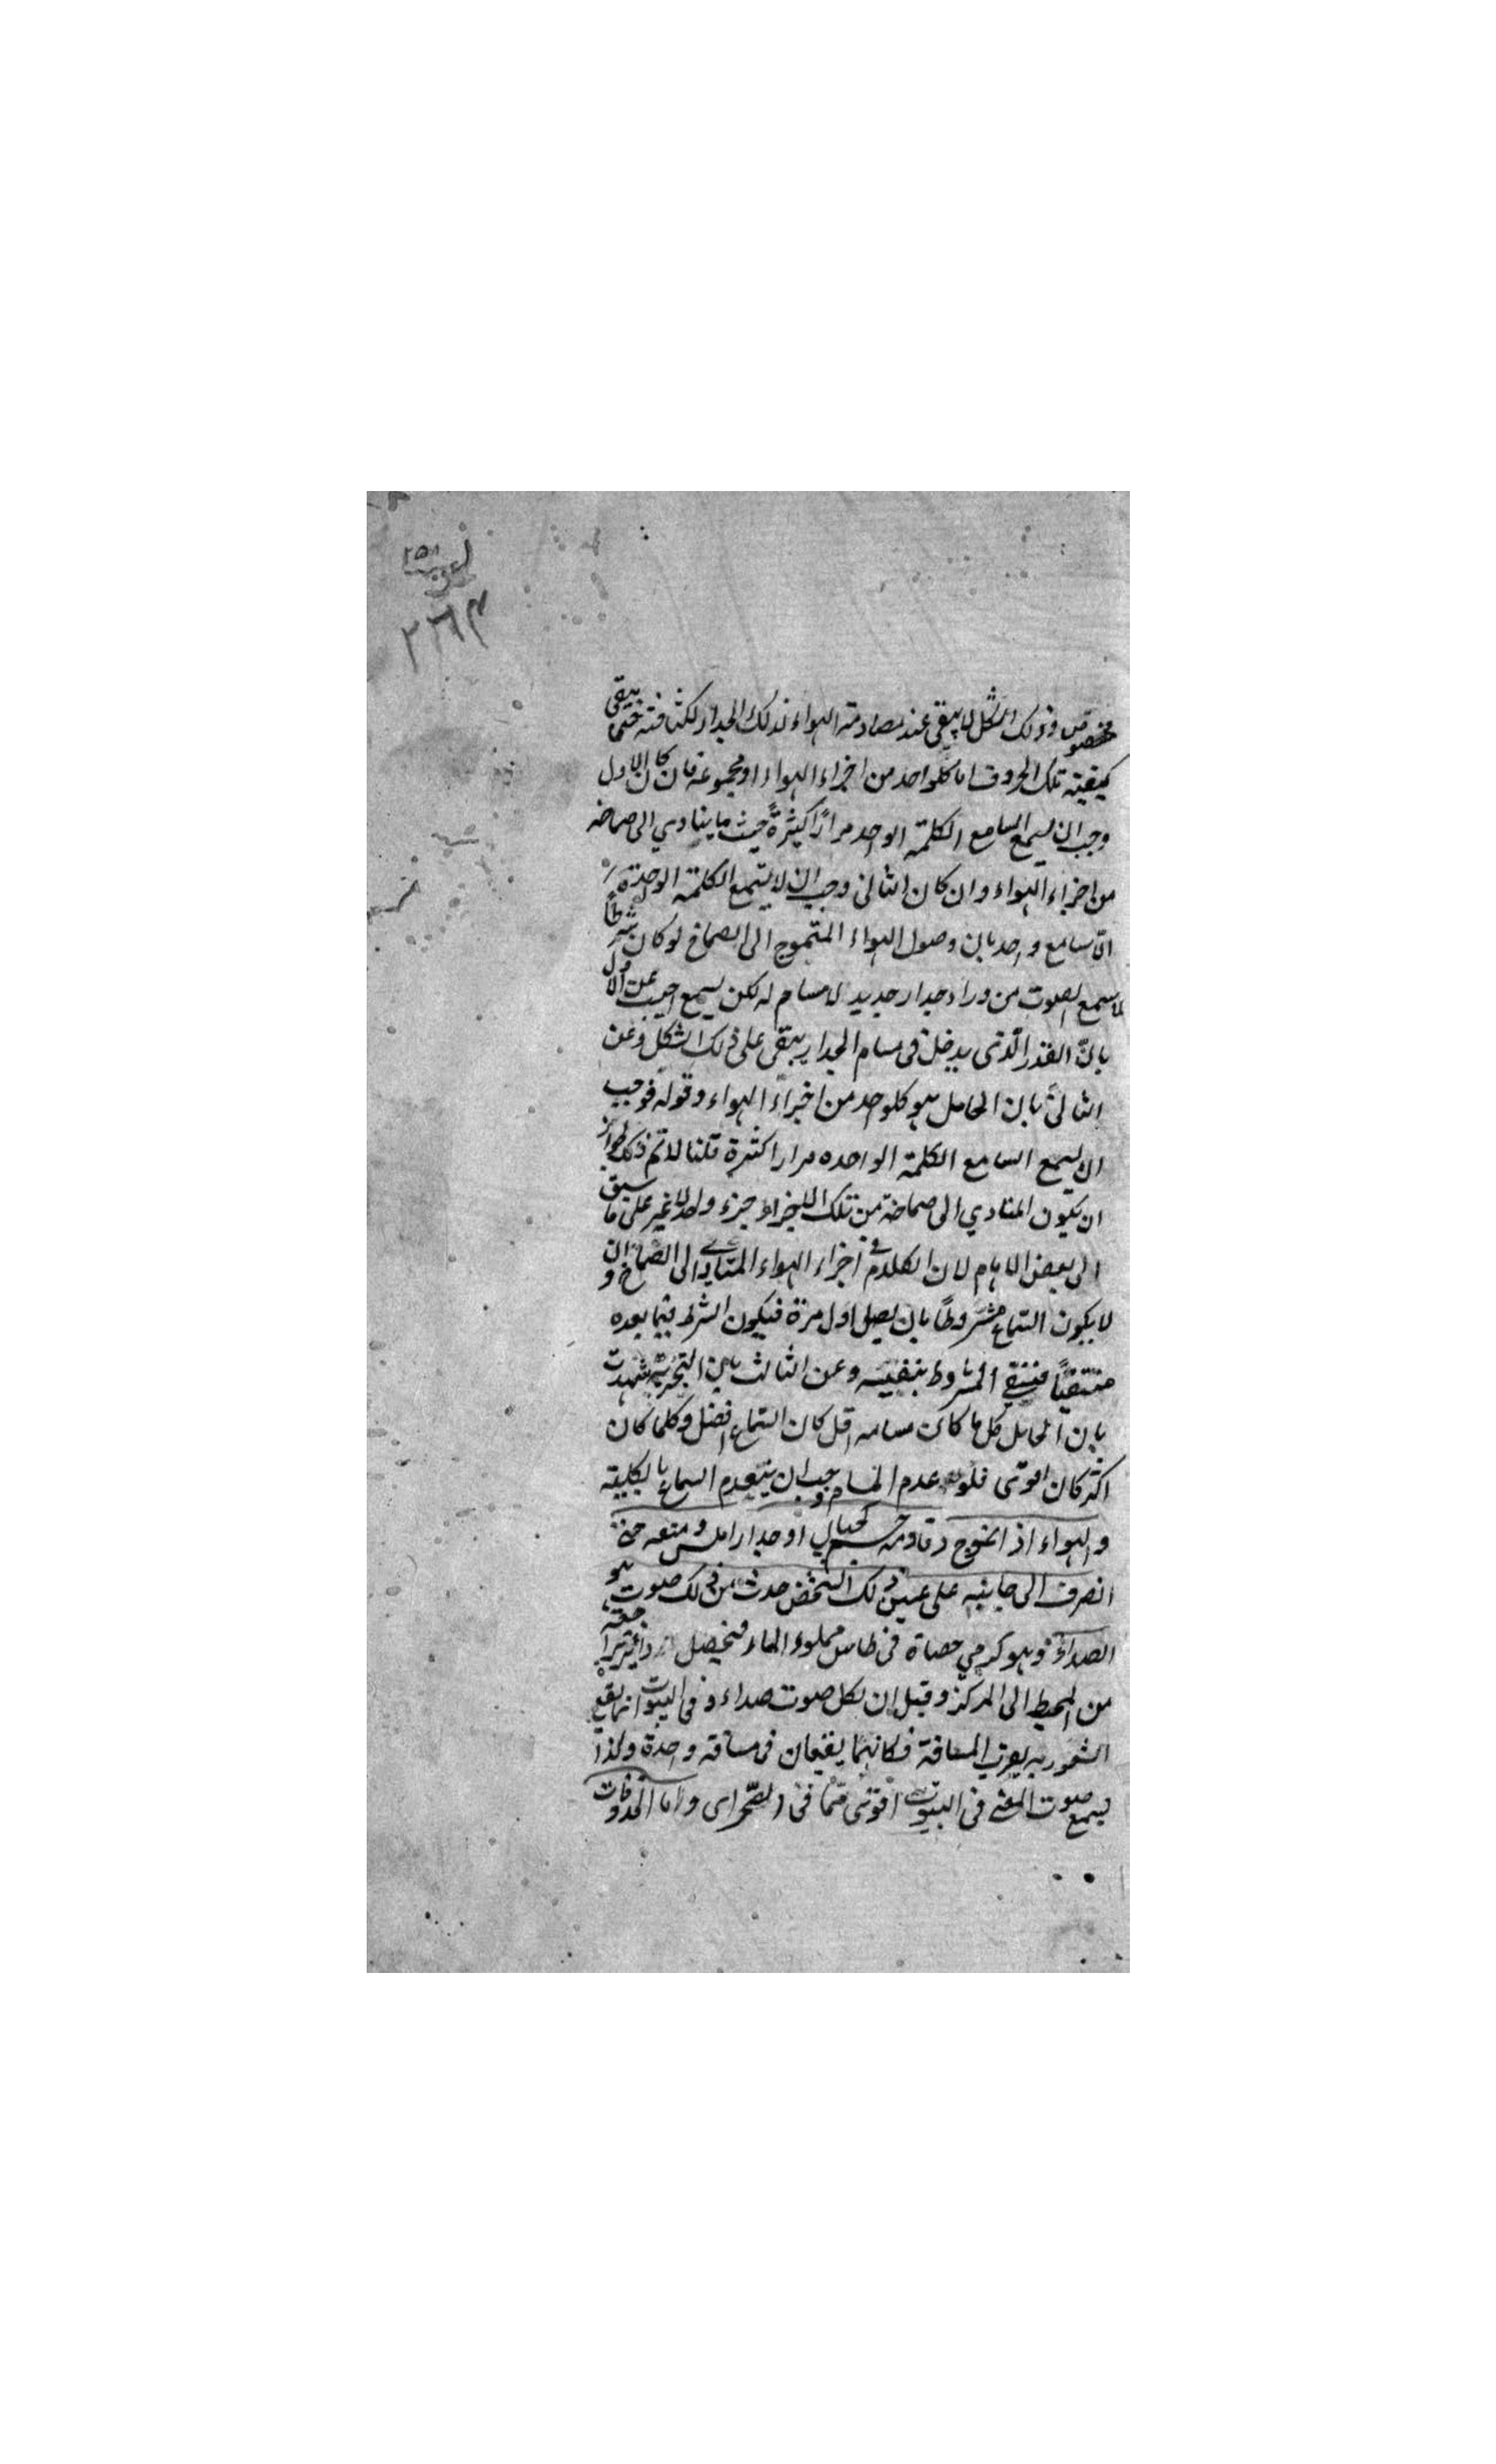 مخصوص وذلك الشكل لا يبقى عند مصادمة الهواء لذلك الجدار لكثافته حتى يبقى
كيفية تلك الحروف اما كلواحد من اجزاء الهواء او مجموعه فان كان الاول
وجب ان يسمع السامع الكلمة الواحد مرارًا كثيرةً حيث ما يتادي الى صماخه
من اجزاء الهواء وان كان الثانى وجب ان لا يسمع الكلمة الواحدة
الا سامع واحد بان وصول الهواء المتموج الى الصماخ لو كان شرطاً
لما سمع الصوت من وراء جدار حديد لا مسام له لكن يسمع اجيب عن الاول
بانّ القدر الّذى يدخل فى مسام الجدار يبقى على ذلك الشكل وعن
الثانى بان الحامل هو كلواحد من اجزاء الهواء وقوله فوجب
ان يسمع السامع الكلمة الواحده مرارا كثيرة قلنا لا نم ذلك لجواز
ان يكون المتادي الى صماخه من تلك الاجزاء جزء واحد لا غير على ما سبق
الى بعض الاوهام لان الكلام فى اجزاء الهواء المتادية الى الصماخ و ان
لا يكون السماع مشروطًا بان يصل اول مرة فيكون الشرط فيما بعده
منتفيًا فينتفى المشروط بنفيه وعن الثالث بان التجربة شهدت
بان الحايل كل ما كان مسامه اقل كان السماع اضل وكلما كان
اكثر كان اقوى فلو عدم المسام وجب ان ينعدم السماع بالكلية
والهواء اذا تموج وقاومه جسم كجبال او جدار املس ومنعه حتى
انصرف الى جانبه على عين ذلك الشخص حدث من ذلك صوت هو
الصداء وهو كرمي حصاة فى طاس مملوء الماء فيحصل
من المحيط الى المركز وقيل ان لكل صوت صداء و فى البيوت انما يقع
الشعور به لقرب المسافة فكانهما يقعان فى مسافة واحدة ولذا
يسمع صوت المغنى فى البيوت اقوى مما فى الصحراى واما الحروف